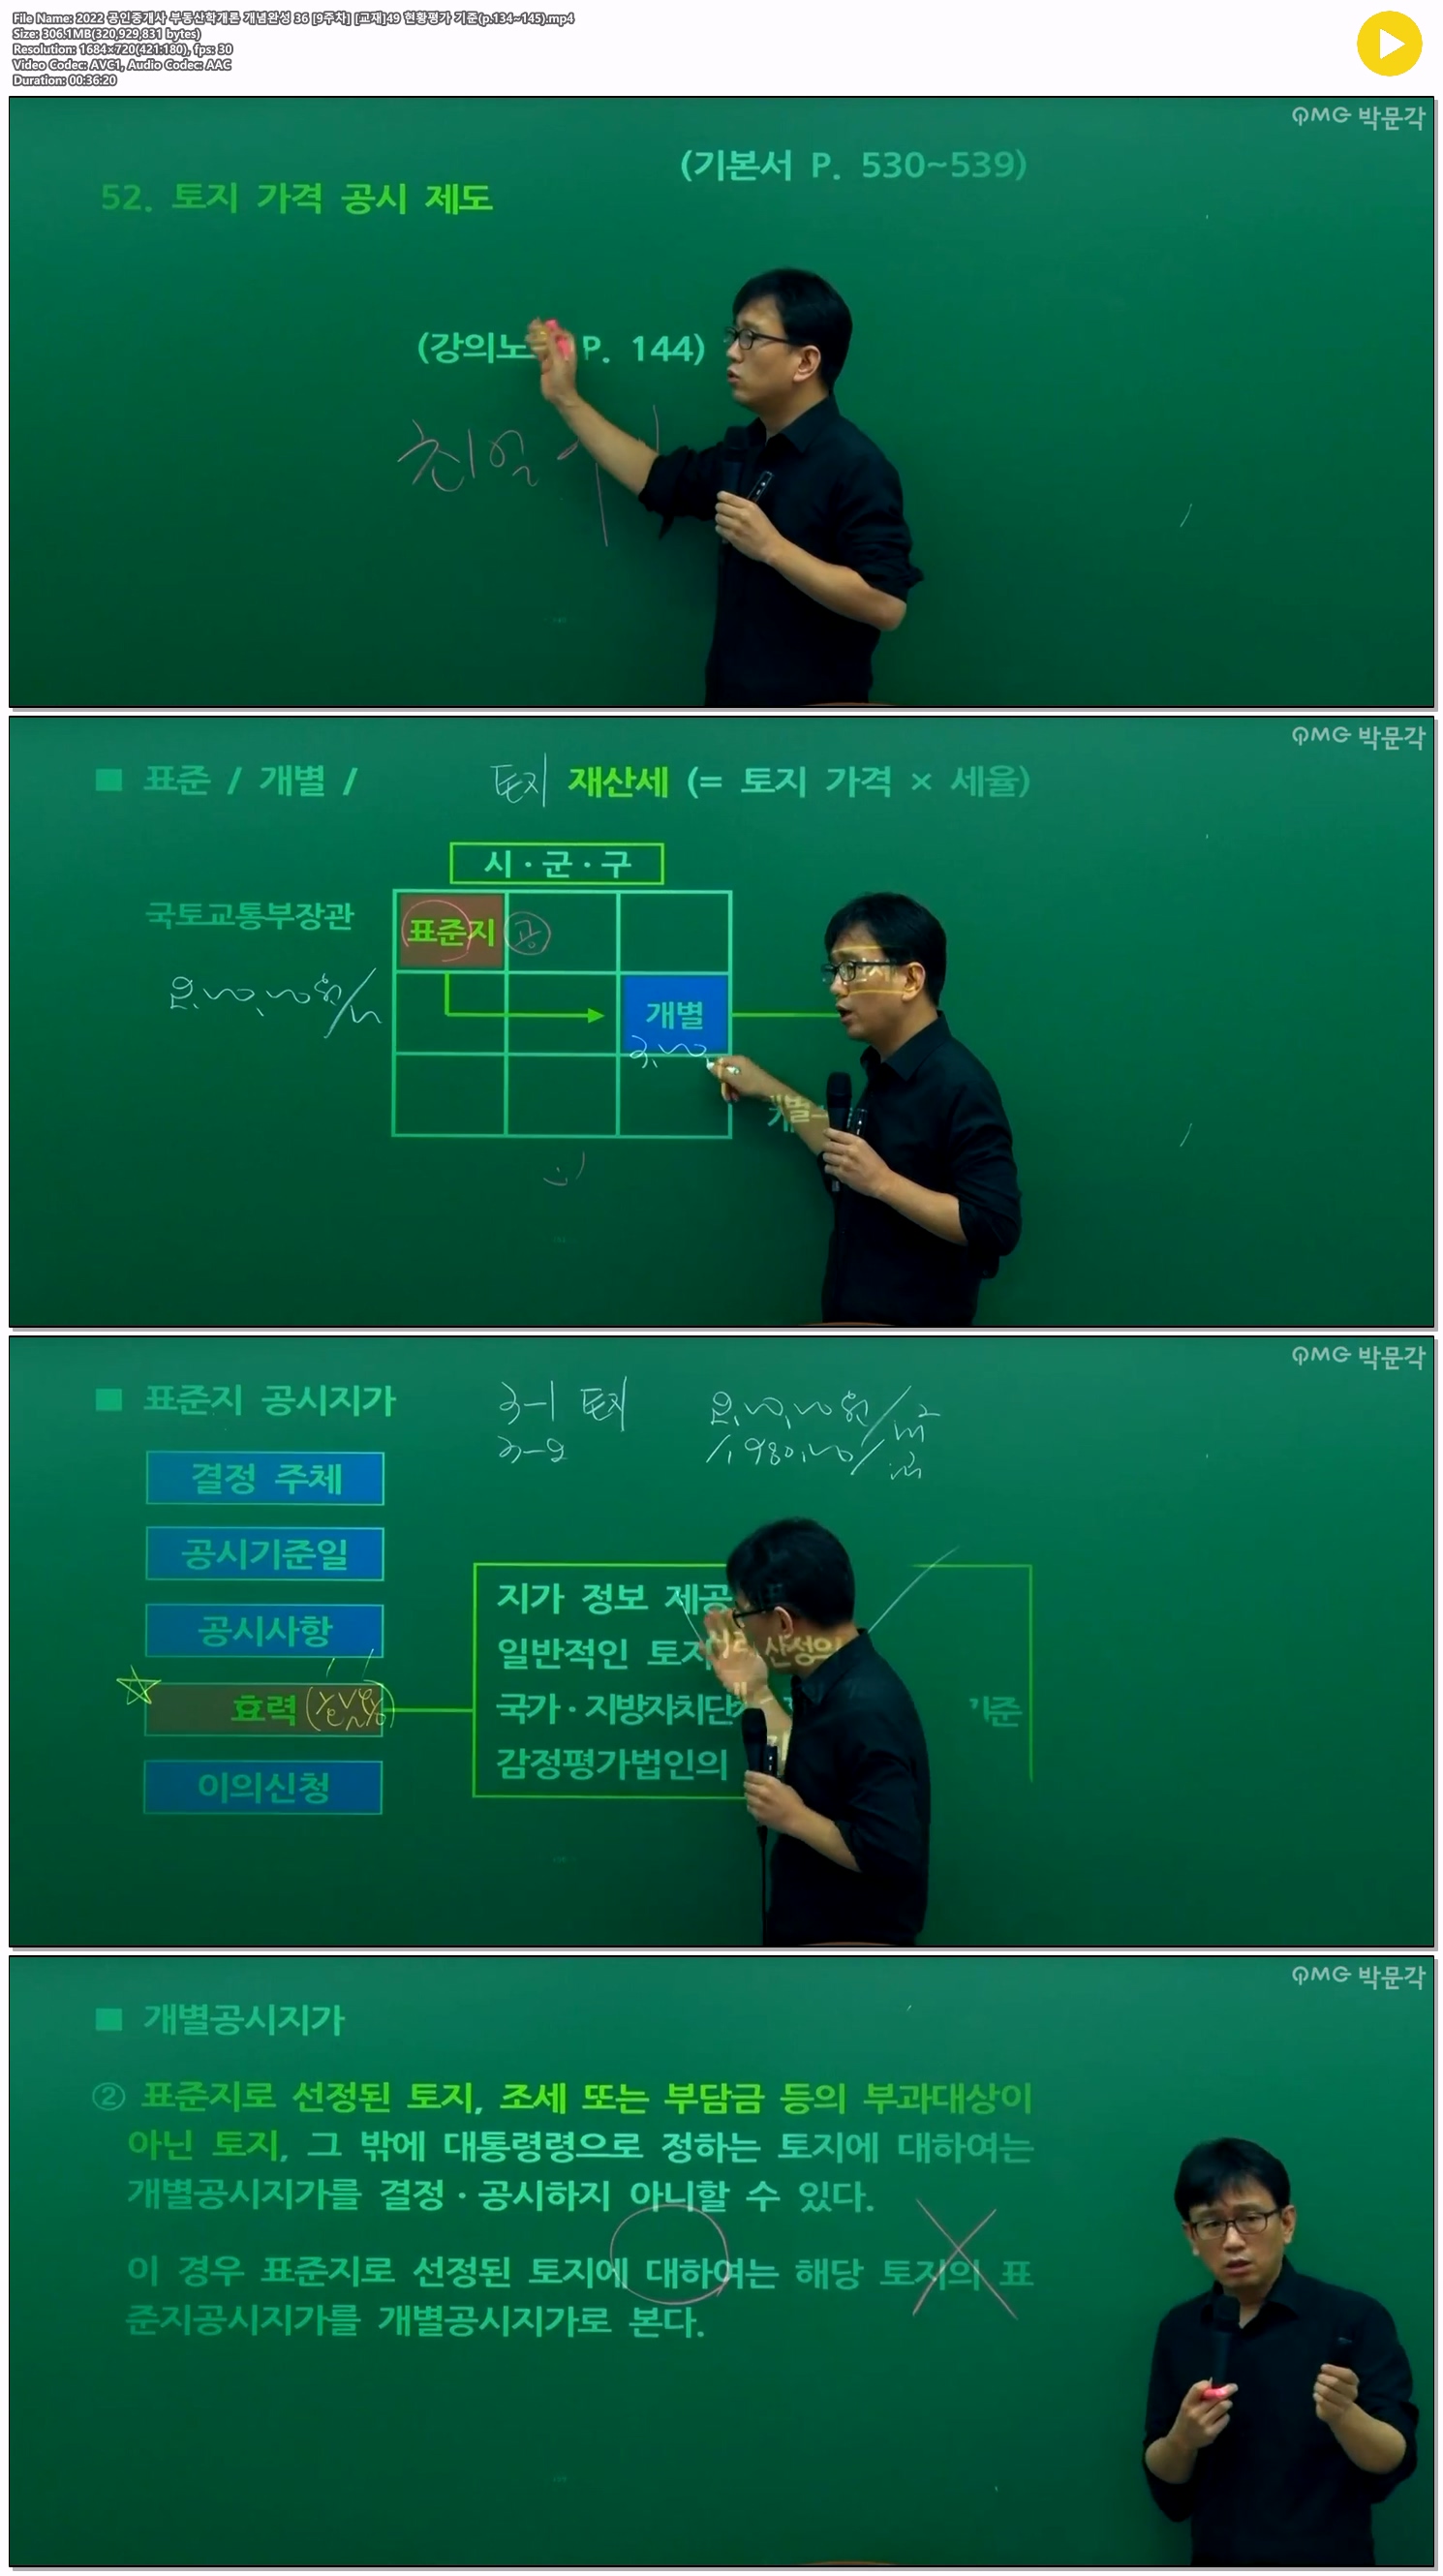 File Name: 2022 공인중개사 부동산학개론 개념완성 36 [9주차] [교재]49 현황평가 기준(p.134~145).mp4
Size: 306.1MB(320,929,831 bytes)
Resolution: 1684×720(421:180), fps: 30
Video Codec: AVC1, Audio Codec: AAC
Duration: 00:36:20
QMG 박문각
(기본서 P. 530~539)
52. 토지 가격 공시 제도
(강의노 P. 144)
친일
QMG 박문각
■ 표준 / 개별 / 토지 재산세 (= 토지 가격 × 세율)
시·군·구
국토교통부장관
표준지 공
개별
QMG 박문각
■ 표준지 공시지가
3-1 토지
3-2
1,980,
결정 주체
공시기준일
공시사항
효력
이의신청
지가 정보 제공
일반적인 토지
국가·지방자치단 기준
감정평가법인의
QMG 박문각
■ 개별공시지가
② 표준지로 선정된 토지, 조세 또는 부담금 등의 부과대상이
아닌 토지, 그 밖에 대통령령으로 정하는 토지에 대하여는
개별공시지가를 결정·공시하지 아니할 수 있다.
이 경우 표준지로 선정된 토지에 대하여는 해당 토지의 표
준지공시지가를 개별공시지가로 본다.